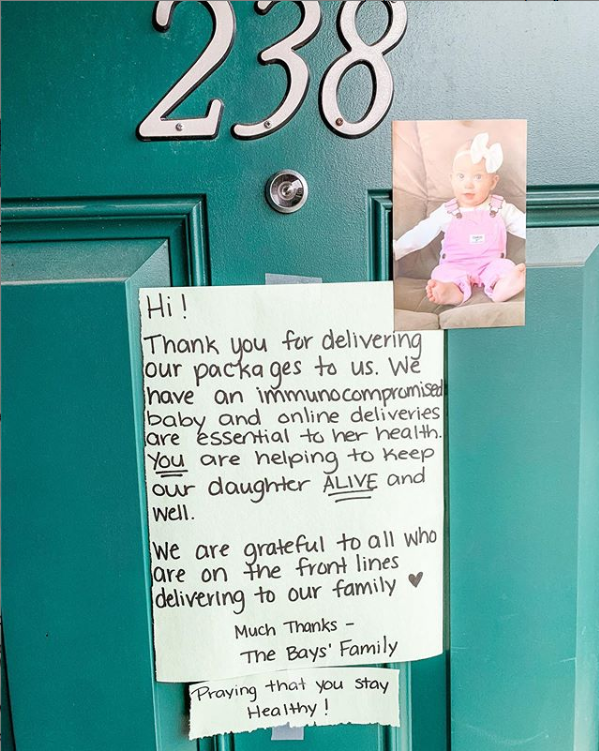 238
Hi!
Thank you for delivering
our packages to us. We
have an immunocompromised
baby and online deliveries
are essential to her health.
You are helping to keep
our daughter ALIVE and
well.
We are grateful to all who
are on the front lines
delivering to our family ♥
Much Thanks -
The Bays' Family
Praying that you stay
Healthy!